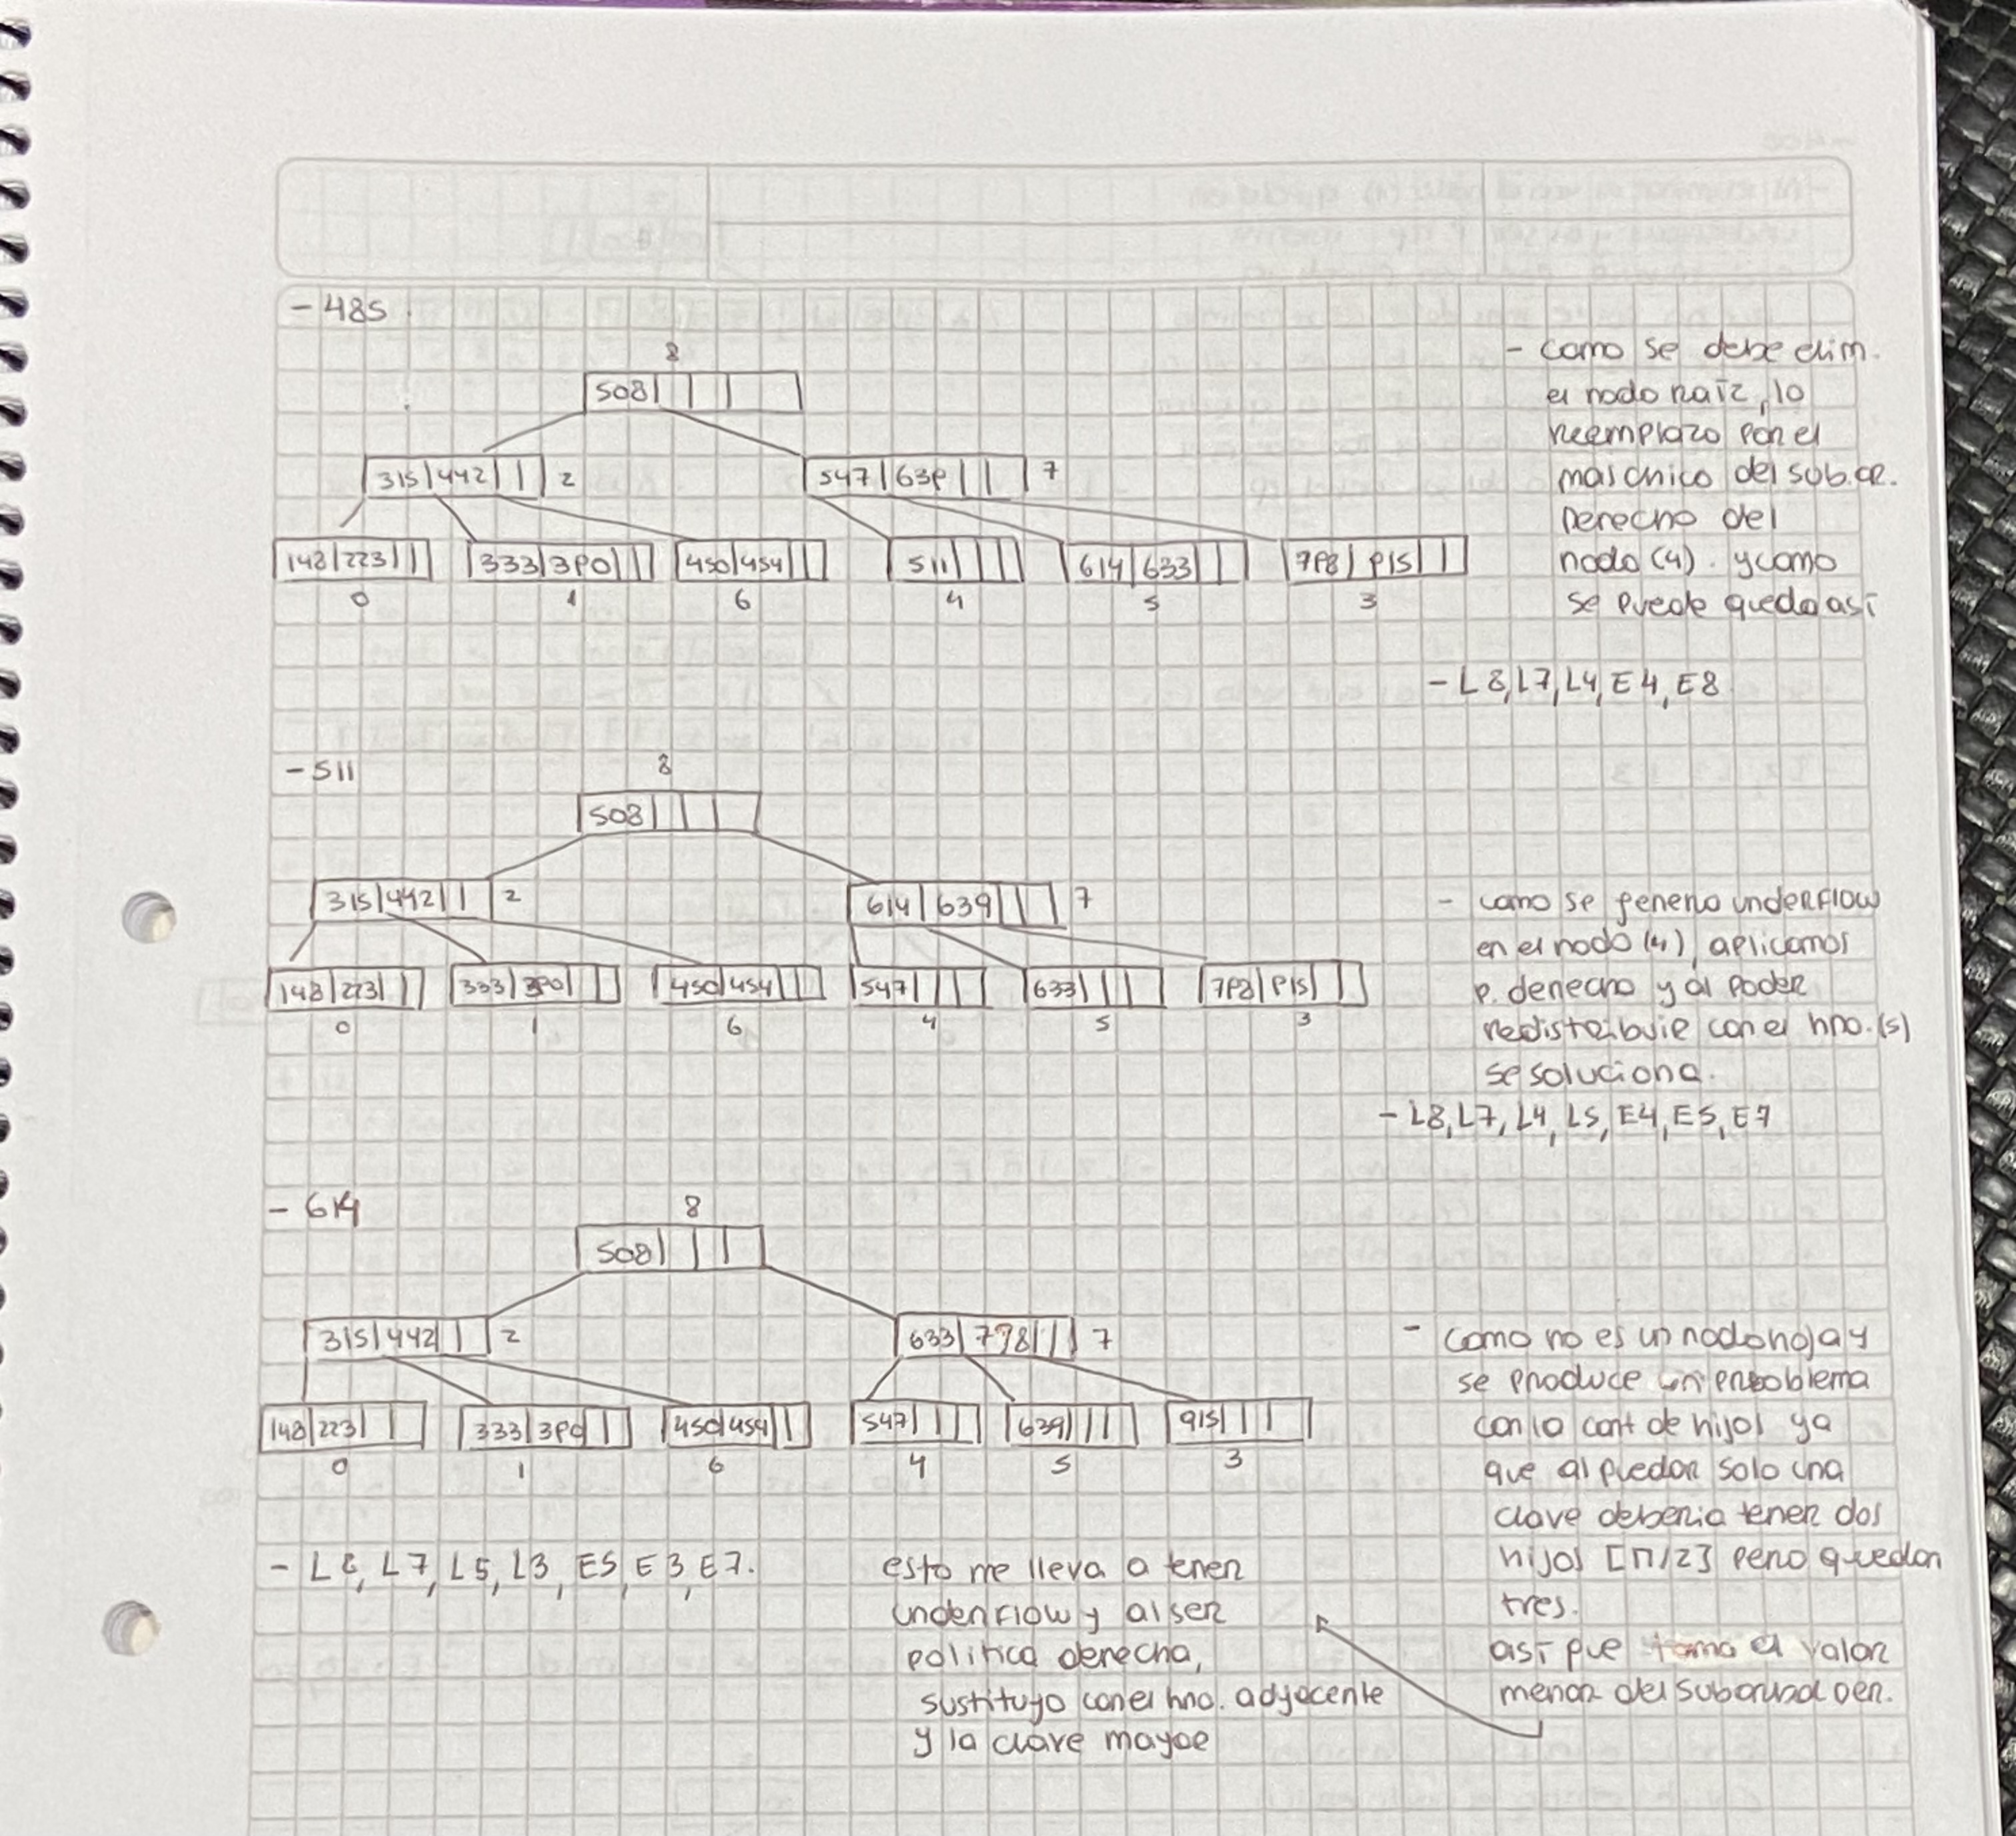 - 485
8
508
315 442 2
547 639 7
148 223
333 390
450 454
511
614 633
798 915
0 1 6 4 5 3
- como se debe elim.
el nodo raíz, lo
reemplazo por el
mas chico del sub.ar.
Derecho del
nodo (4). y como
se puede queda así
- L8, L7, L4, E4, E8
- 511
8
508
315 442 2
614 639 7
148 223
333 390
450 454
547
633
798 915
0 1 6 4 5 3
- como se genero underflow
en el nodo (4), aplicamos
p. derecha y al poder
redistribuir con el hno. (5)
se soluciona.
- L8, L7, L4, L5, E4, E5, E7
- 614
8
508
315 442 2
633 798 7
148 223
333 390
450 454
547
639
915
0 1 6 4 5 3
- como no es un nodo hoja y
se produce un problema
con la cant de hijos ya
que al quedar solo una
clave deberia tener dos
hijos [M/2] pero quedan
tres.
así que tomo el valor
menor del subarbol der.
- L8, L7, L5, L3, E5, E3, E7.
esto me lleva a tener
underflow y al ser
politica derecha,
sustituyo con el hno. adyacente
y la clave mayor